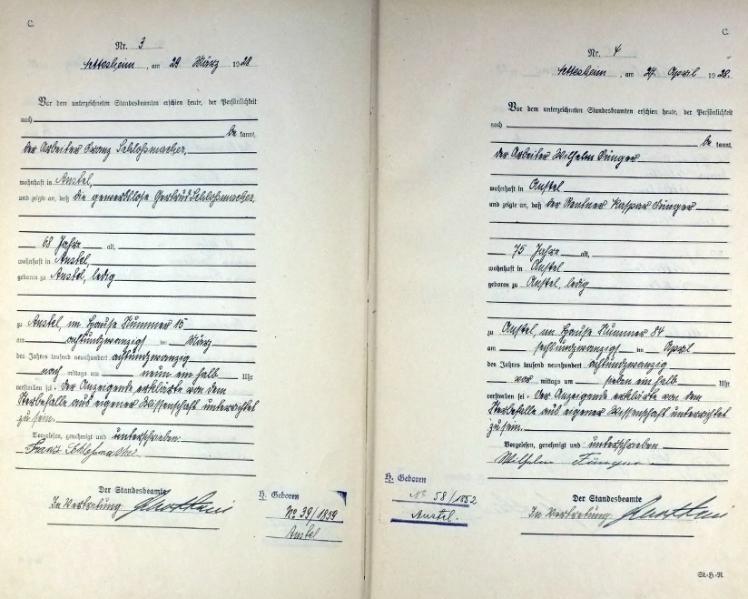 C.
Nr. 3
am 29 März 1928
Vor dem unterzeichneten Standesbeamten erschien heute, der Persönlichkeit
nach
be kannt,
der Arbeiter Franz Schlossmacher,
wohnhaft in Anstel,
und zeigte an, daß die gewerblose Gertrud Schlossmacher,
68 Jahre alt,
wohnhaft in Anstel,
geboren zu Anstel, ledig
zu Anstel, im Hause Nummer 15
am achtundzwanzig ten März
des Jahres tausend neunhundert achtundzwanzig
nach mittags um neun ein halb Uhr
verstorben sei. Der Anzeigende erklärte von dem
Sterbefalle aus eigener Wissenschaft unterrichtet
zu sein.
Vorgelesen, genehmigt und unterschrieben
Franz Schlossmacher
Der Standesbeamte
In Vertretung
H. Geboren
No 39/1859
Anstel
C.
Nr. 4
am 27. April 1928.
Vor dem unterzeichneten Standesbeamten erschien heute, der Persönlichkeit
nach
be kannt,
der Arbeiter Wilhelm
wohnhaft in Anstel
und zeigte an, daß der Rentner Kaspar
75 Jahre alt,
wohnhaft in Anstel
geboren zu Anstel, ledig
zu Anstel, im Hause Nummer 84
am ten April
des Jahres tausend neunhundert achtundzwanzig
vor mittags um sieben ein halb Uhr
verstorben sei. Der Anzeigende erklärte von dem
Sterbefalle aus eigener Wissenschaft unterrichtet
zu sein.
Vorgelesen, genehmigt und unterschrieben
Wilhelm
Der Standesbeamte
In Vertretung
H. Geboren
No 58/1852
Anstel.
St.-H.-R.